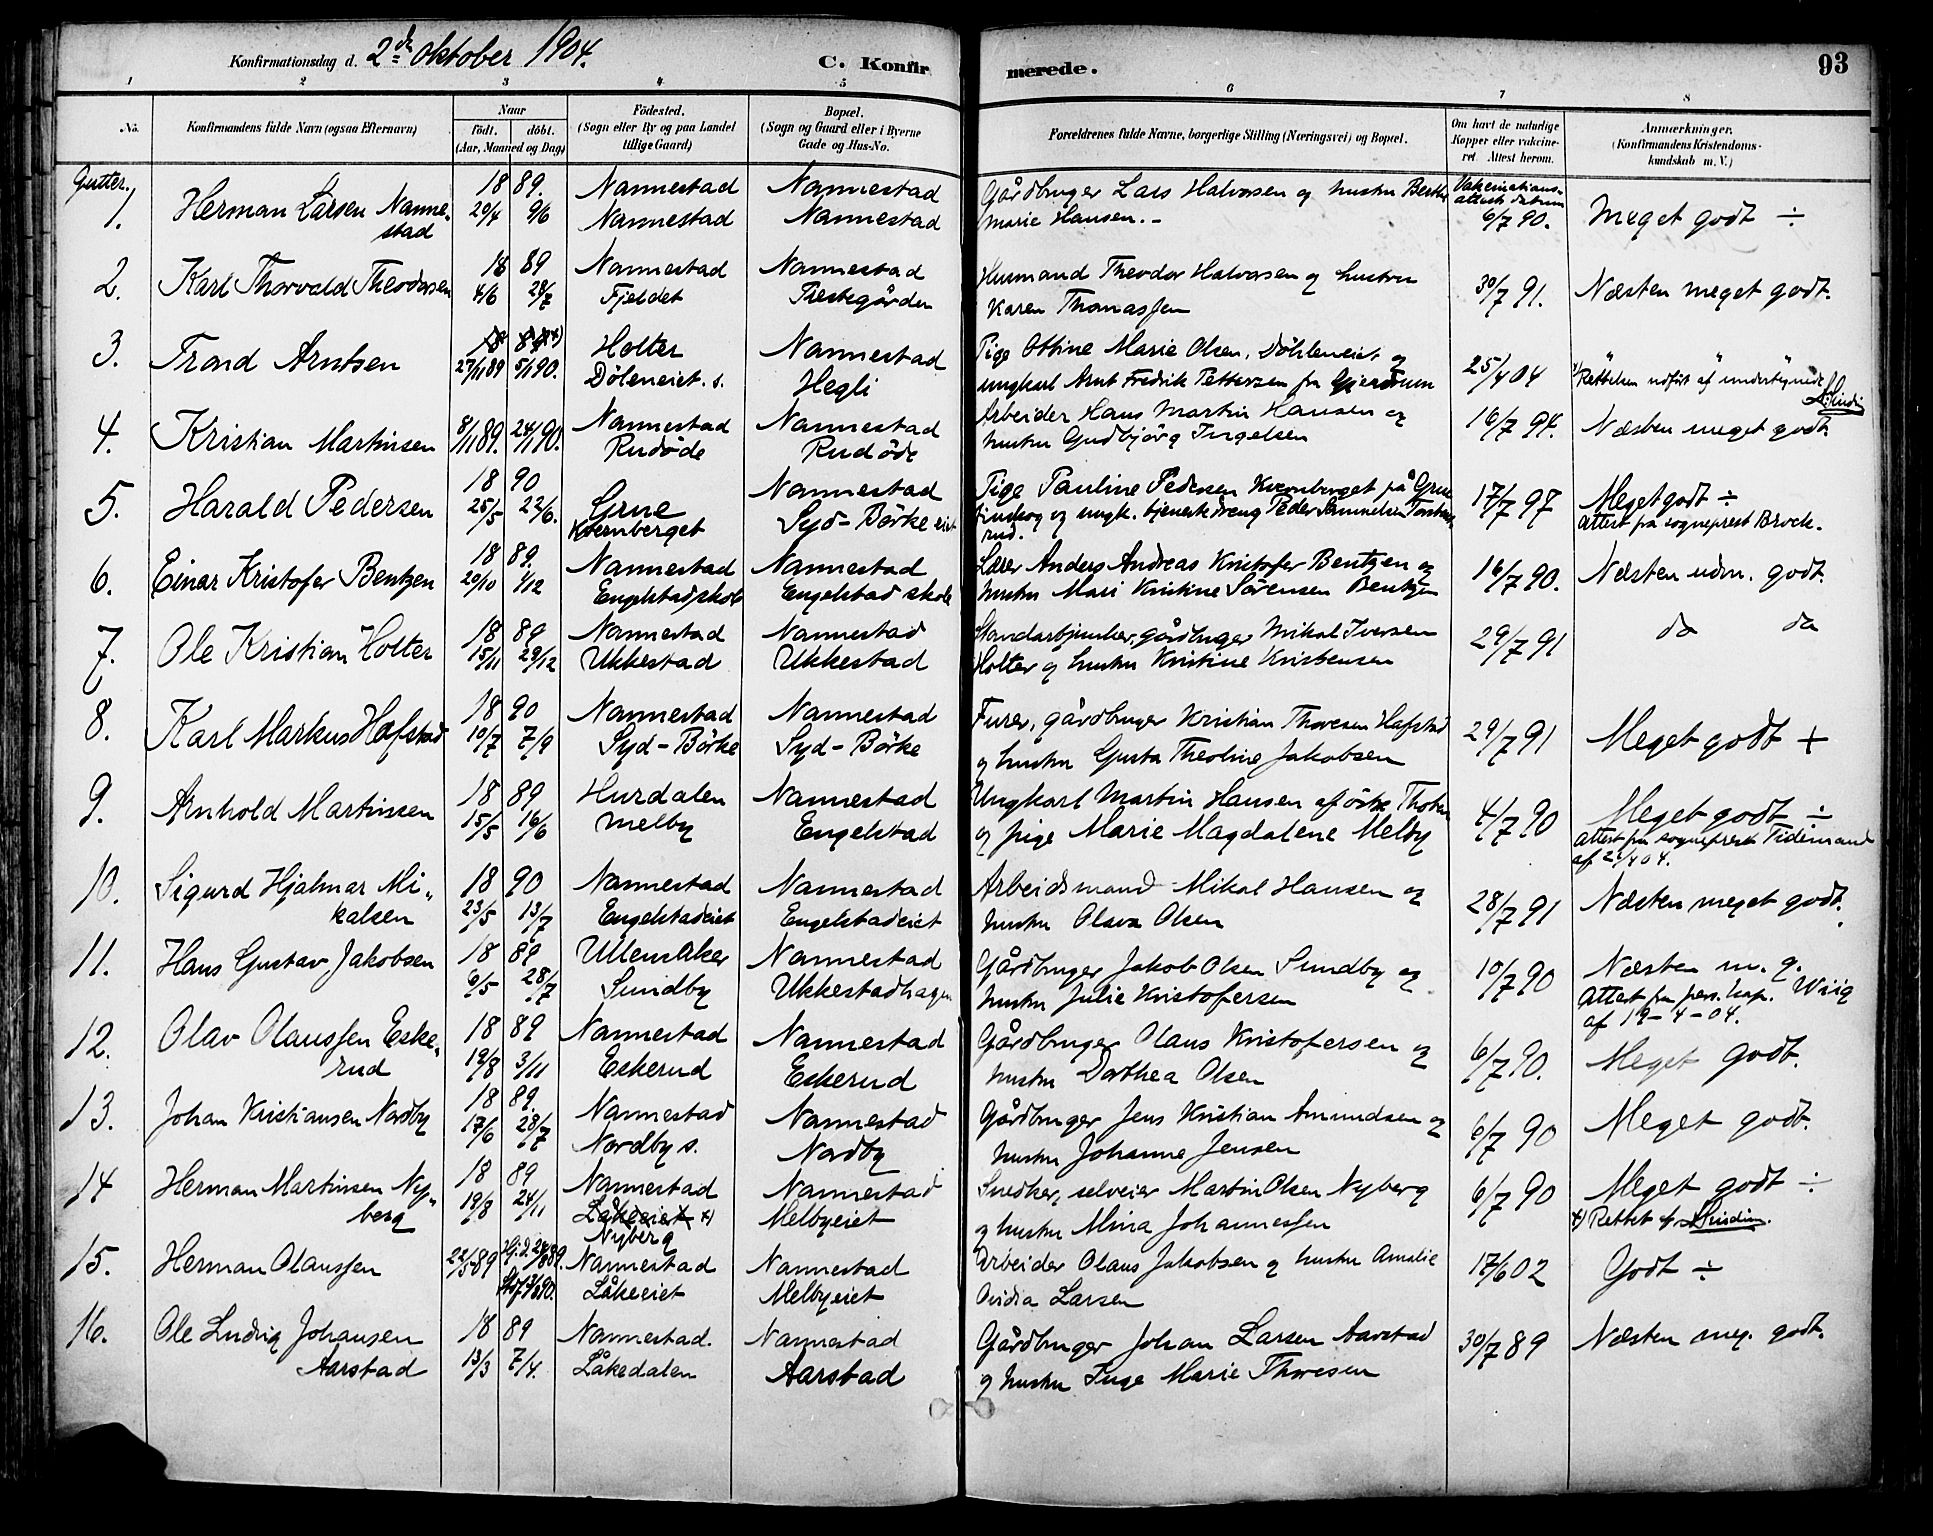 Konfirmationsdag d. 2den oktober 1904.
C. Konfirmerede.
93
1 2 3 4 5 6 7 8
No.
Konfirmandens fulde Navn (ogsaa Efternavn)
Naar
født. døbt.
(Aar, Maaned og Dag)
Fødested.
(Sogn eller By og paa Landet tillige Gaard)
Bopæl.
(Sogn og Gaard eller i Byerne Gade og Hus-No.
Forældrenes fulde Navne, borgerlige Stilling (Næringsvei) og Bopæl.
Om havt de naturlige Kopper eller vakcineret. Attest herom.
Anmærkninger.
(Konfirmandens Kristendomskundskab m. V.)
Gutter.
1. Herman Larsen Nannestad 1889. 20/4 9/6 Nannestad Nannestad Nannestad Nannestad Gårdbruger Lars Halvorsen og hustru Berthe Marie Hansen.- Vakcinationsattest datum 6/7 90. Meget godt ÷
2. Karl Thorvald Theodorsen 1889 4/6 28/7 Nannestad Fjeldet Nannestad Prestegården Husmand Theodor Halvorsen og hustru Karen Thomassen 30/7 91. Næsten meget godt.
3. Trond Arntsen 27/11 89 5/1 90. Holter Døleneiet. s. Nannestad Hegli Pige Ottine Marie Olsen, Døhleneiet og ungkarl Arnt Fredrik Petterzen fra Gjerdrum 25/4 04 Rettelsen udført af undertegnede
4. Kristian Martinsen 8/11 89. 24/1 90. Nannestad Rudøde Nannestad Rudøde Arbeider Hans Martin Hansen og hustru Gudbjørg Ingelsen 16/7 94. Næsten meget godt.
5. Harald Pedersen 1890 25/5 22/6. Grue Kvernberget Nannestad Syd-Børke eiet Pige Pauline Pedersen Kvernberget på Grue og ungk. tjenestedreng Peder Samuelsen 17/7 97 Meget godt ÷ Attest fra sogneprest Brock.
6. Einar Kristofer Bentzen 1889. 20/10 1/12 Nannestad Engelstad skole Nannestad Engelstad skole Lærer Anders Andreas Kristofer Bentzen og hustru Mari Kristine Sørensen Bentzen 16/7 90. Næsten udm. godt.
7. Ole Kristian Holter 1889 15/11 29/12 Nannestad Ukkestad Nannestad Ukkestad Standartjunker, gårdbruger Mikal Iversen Holter og hustru Kristine Kristensen 29/7 91 do do
8. Karl Markus Hafstad 1890 10/7 7/9 Nannestad Syd-Børke Nannestad Syd-Børke Furer, gårdbruger Kristian Thoresen Hafstad og hustru Gusta Theoline Jakobsen 29/7 91 Meget godt +
9. Arnhold Martinsen 1889 15/5 16/6 Hurdalen Melby Nannestad Engelstad Ungkarl Martin Hansen af østre Thoten og pige Marie Magdalene Melby 4/7 90 Meget godt ÷ Attest fra sogneprest Tidemand
10. Sigurd Hjalmar Mikalsen 1890 23/5 13/7 Nannestad Engelstadeiet Nannestad Engelstadeiet Arbeidsmand Mikal Hansen og hustru Olava Olsen 28/7 91 Næsten meget godt.
11. Hans Gustav Jakobsen 1889 6/5 28/7 Ullensaker Sundby Nannestad Ukkestadhagen Gårdbruger Jakob Olsen Sundby og hustru Julie Kristofersen 10/7 90 Næsten m. g. Attest fra pers. kap. Wiig af 19-4-04.
12. Olav Olaussen Eskerud 1889 19/8 3/11 Nannestad Eskerud Nannestad Eskerud Gårdbruger Olaus Kristofersen og hustru Dorthea Olsen 6/7 90. Meget godt.
13. Johan Kristiansen Nordby 1889. 17/6 28/7 Nannestad Nordby s. Nannestad Nordby Gårdbruger Jens Kristian Amundsen og hustru Johanne Jensen 6/7 90 Meget godt.
14 Herman Martinsen Nyberg 1889 19/8 24/11 Nannestad Låkeeiet x) Nyberg Nannestad Melbyeiet Snedker, selveier Martin Olsen Nyberg og hustru Mina Johannessen 6/7 90 Meget godt ÷ x) Rettet af
15. Herman Olaussen 22/5 89 Nannestad Låkeeiet Nannestad Melbyeiet Arbeider Olaus Jakobsen og hustru Amalie Ovidia Larsen 17/6 02 Godt ÷
16. Ole Ludvig Johansen Aarstad 1889 13/3 7/4. Nannestad. Låkedalen Nannestad Aarstad Gårdbruger Johan Larsen Aarstad og hustru Inge Marie Thoresen 30/7 89 Næsten meg. godt.